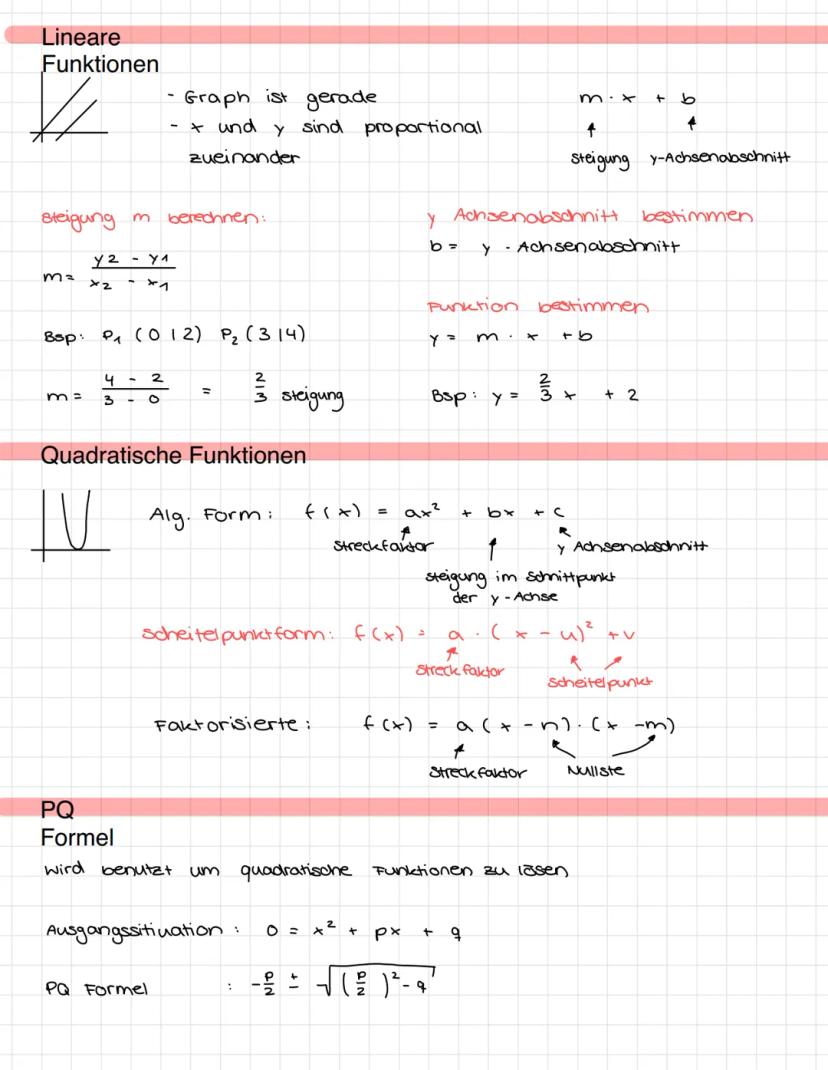 Lineare
Funktionen
- Graph ist gerade
- x und y sind proportional
zueinander
m · x + b
Steigung y-Achsenabschnitt
Steigung m berechnen:
m = (y2 - y1) / (x2 - x1)
Bsp: P₁ (0|2) P₂ (3|4)
m = (4 - 2) / (3 - 0) = 2/3 Steigung
y Achsenabschnitt bestimmen
b = y - Achsenabschnitt
Funktion bestimmen
y = m · x + b
Bsp: y = 2/3 x + 2
Quadratische Funktionen
Alg. Form: f(x) = ax² + bx + c
Streckfaktor
y Achsenabschnitt
Steigung im Schnittpunkt
der y-Achse
Scheitelpunktform: f(x) = a · (x - u)² + v
Streckfaktor
Scheitelpunkt
Faktorisierte: f(x) = a (x - n) · (x - m)
Streckfaktor Nullste
PQ
Formel
Wird benutzt um quadratische Funktionen zu lösen
Ausgangssitiuation: 0 = x² + px + q
PQ Formel : -p/2 ± √((p/2)² - q)